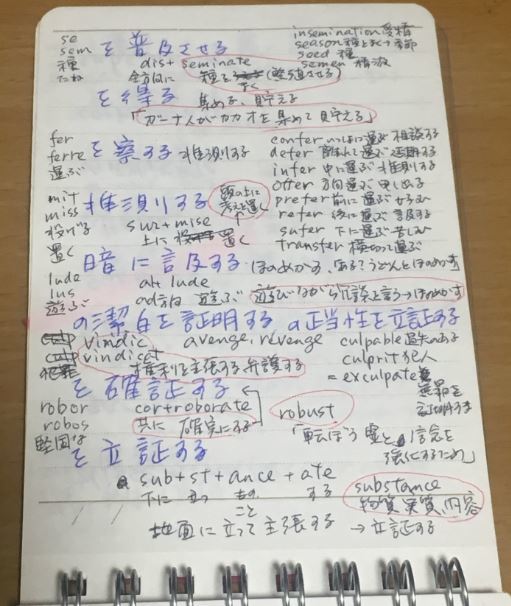 se
sem を普及させる insemination 受精
種 dis+seminate season 種まく季節
たね 全方向に 種を まく (繁殖させる) seed 種
semen 精液
を得る 集める、貯える
「ガーナ人がカカオを集めて貯える」
fer を察する 推測する confer いっしょに運ぶ 相談する
ferre defer 離れて運ぶ 延期する
運ぶ infer 中に運ぶ 推測する
offer 方向 運ぶ 申し出る
mit 推測する prefer 前に運ぶ
miss sur+mise refer 後に運ぶ 言及する
投げる 上に 置く sufer 下に運ぶ 苦しむ
置く transfer 横切って運ぶ
暗に言及する ほのめかす
lude al+lude
lus ad 方へ 遊ぶ 遊びながら 言う→ほのめかす
遊ぶ
の潔白を証明する の正当性を立証する
vindic avenge, revenge culpable 過失のある
vindicat culprit 犯人
権利を主張する 弁護する = exculpate
無罪を
証明する
を確証する
robor cor+roborate robust
robos 共に 確実にする
堅固な 信念を
強くするため」
を立証する
sub+st+ance+ate
下に 立つ もの する substance
こと 物質 実質、内容
地面に立って主張する → 立証する